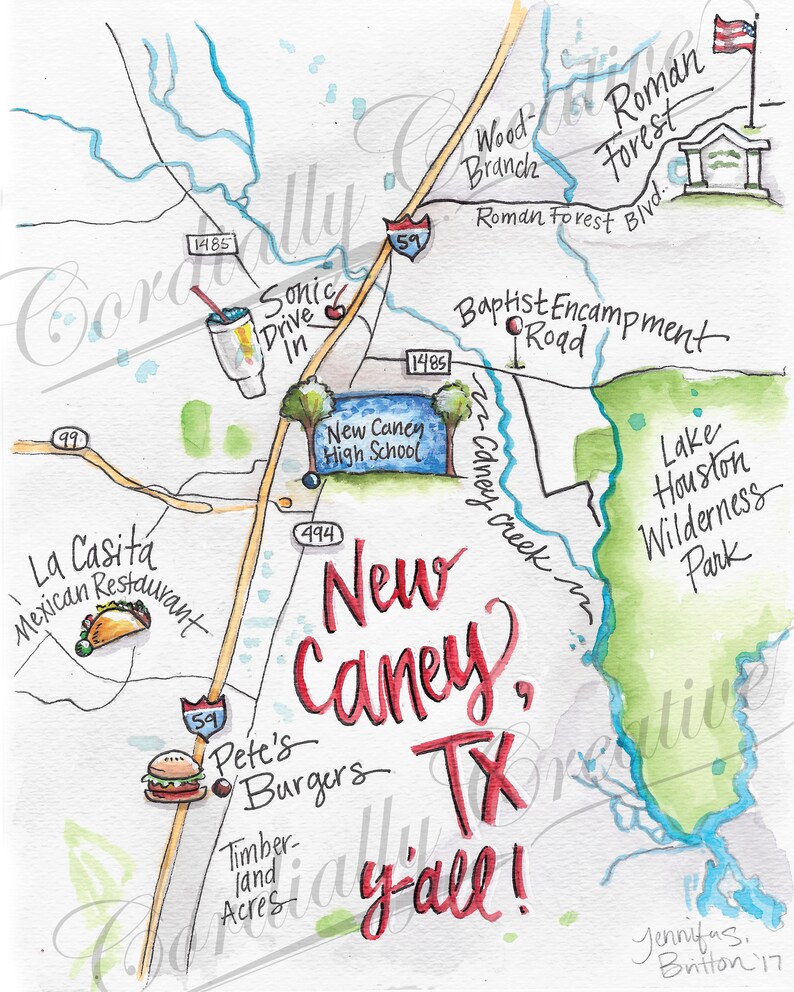 Wood-
Branch
Roman
Forest
Roman Forest Blvd.
59
1485
Sonic
Drive
In
Baptist Encampment
Road
1485
New Caney
High School
99
494
Caney Creek
Lake
Houston
Wilderness
Park
La Casita
Mexican Restaurant
New
Caney,
TX
y'all!
59
Pete's
Burgers
Timber-
land
Acres
Jennifer S.
Britton '17
Cordially Creative
Cordially Creative
Cordially Creative
Cordially Creative